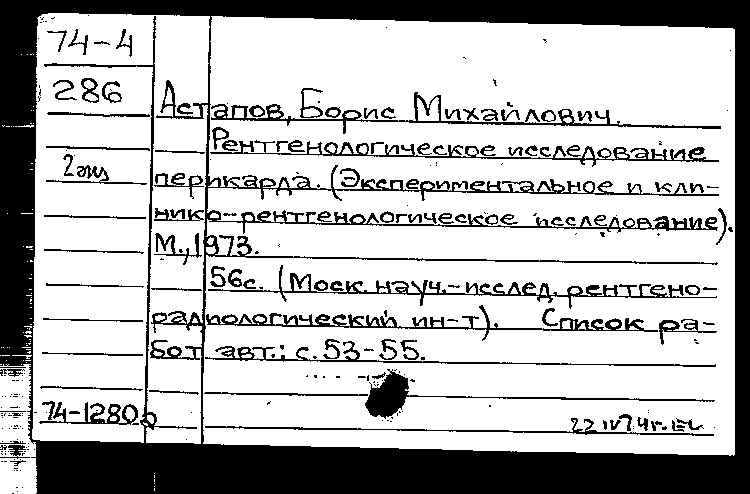 74-4
286
Астапов, Борис Михайлович.
Рентгенологическое исследование
2 экз
перикарда. (Экспериментальное и кли-
нико-рентгенологическое исследование).
М., 1973.
56с. (Моск. науч.-исслед. рентгено-
радиологический ин-т). Список ра-
бот авт.: с. 53-55.
74-1280р
22 IV 74г.